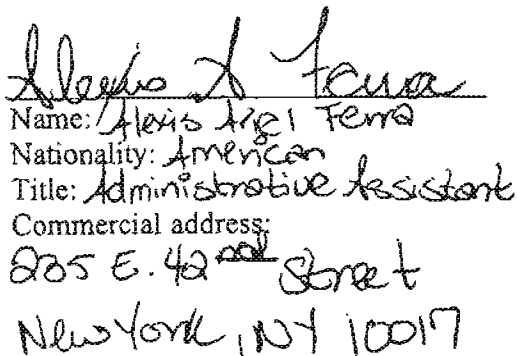 Alexis A Ferra
Name: Alexis Ferra
Nationality: American
Title: Administrative Assistant
Commercial address:
235 E. 42nd Street
New York, NY 10017